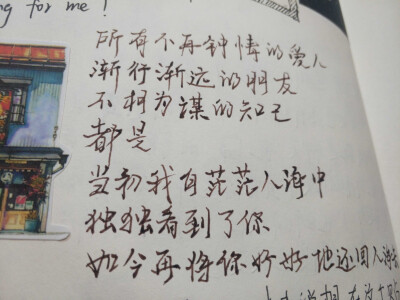 ng for me!
所有不再钟情的爱人
渐行渐远的朋友
不相为谋的知己
都是
当初我自茫茫人海中
独独看到了你
如今再将你好好地还回人海去